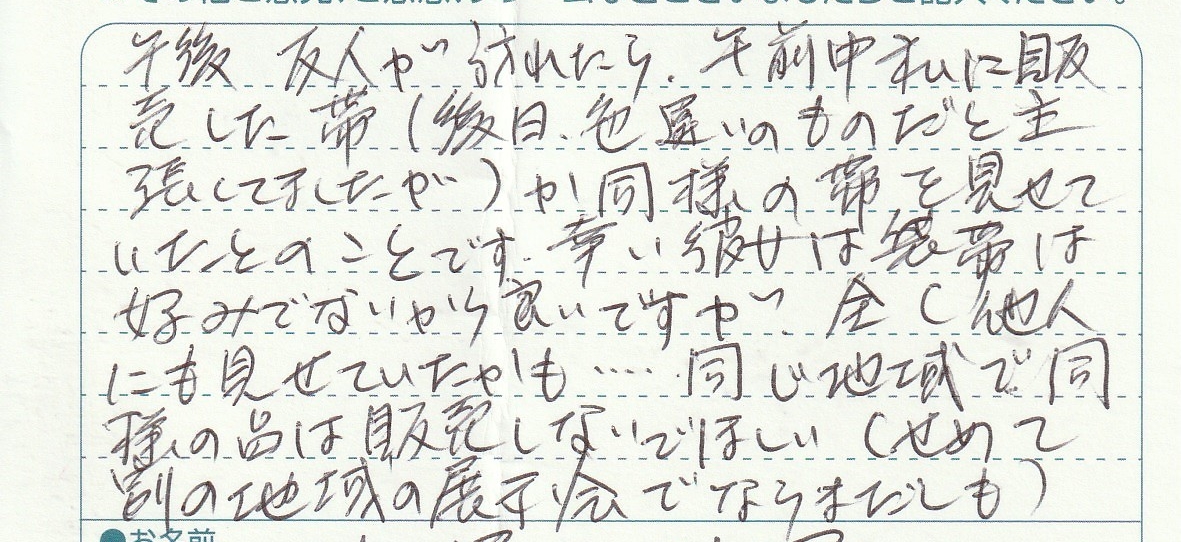 午後 友人が訪れたら、午前中私に販
売した帯(後日、色違いのものだと主
張してましたが)か同様の帯を見せて
いたとのことです。幸い彼女は袋帯は
好みでないから良いですが、全く他人
にも見せていたかも‥‥同じ地域で同
様の品は販売しないでほしい(せめて
別の地域の展示会でならまだしも)
●お名前